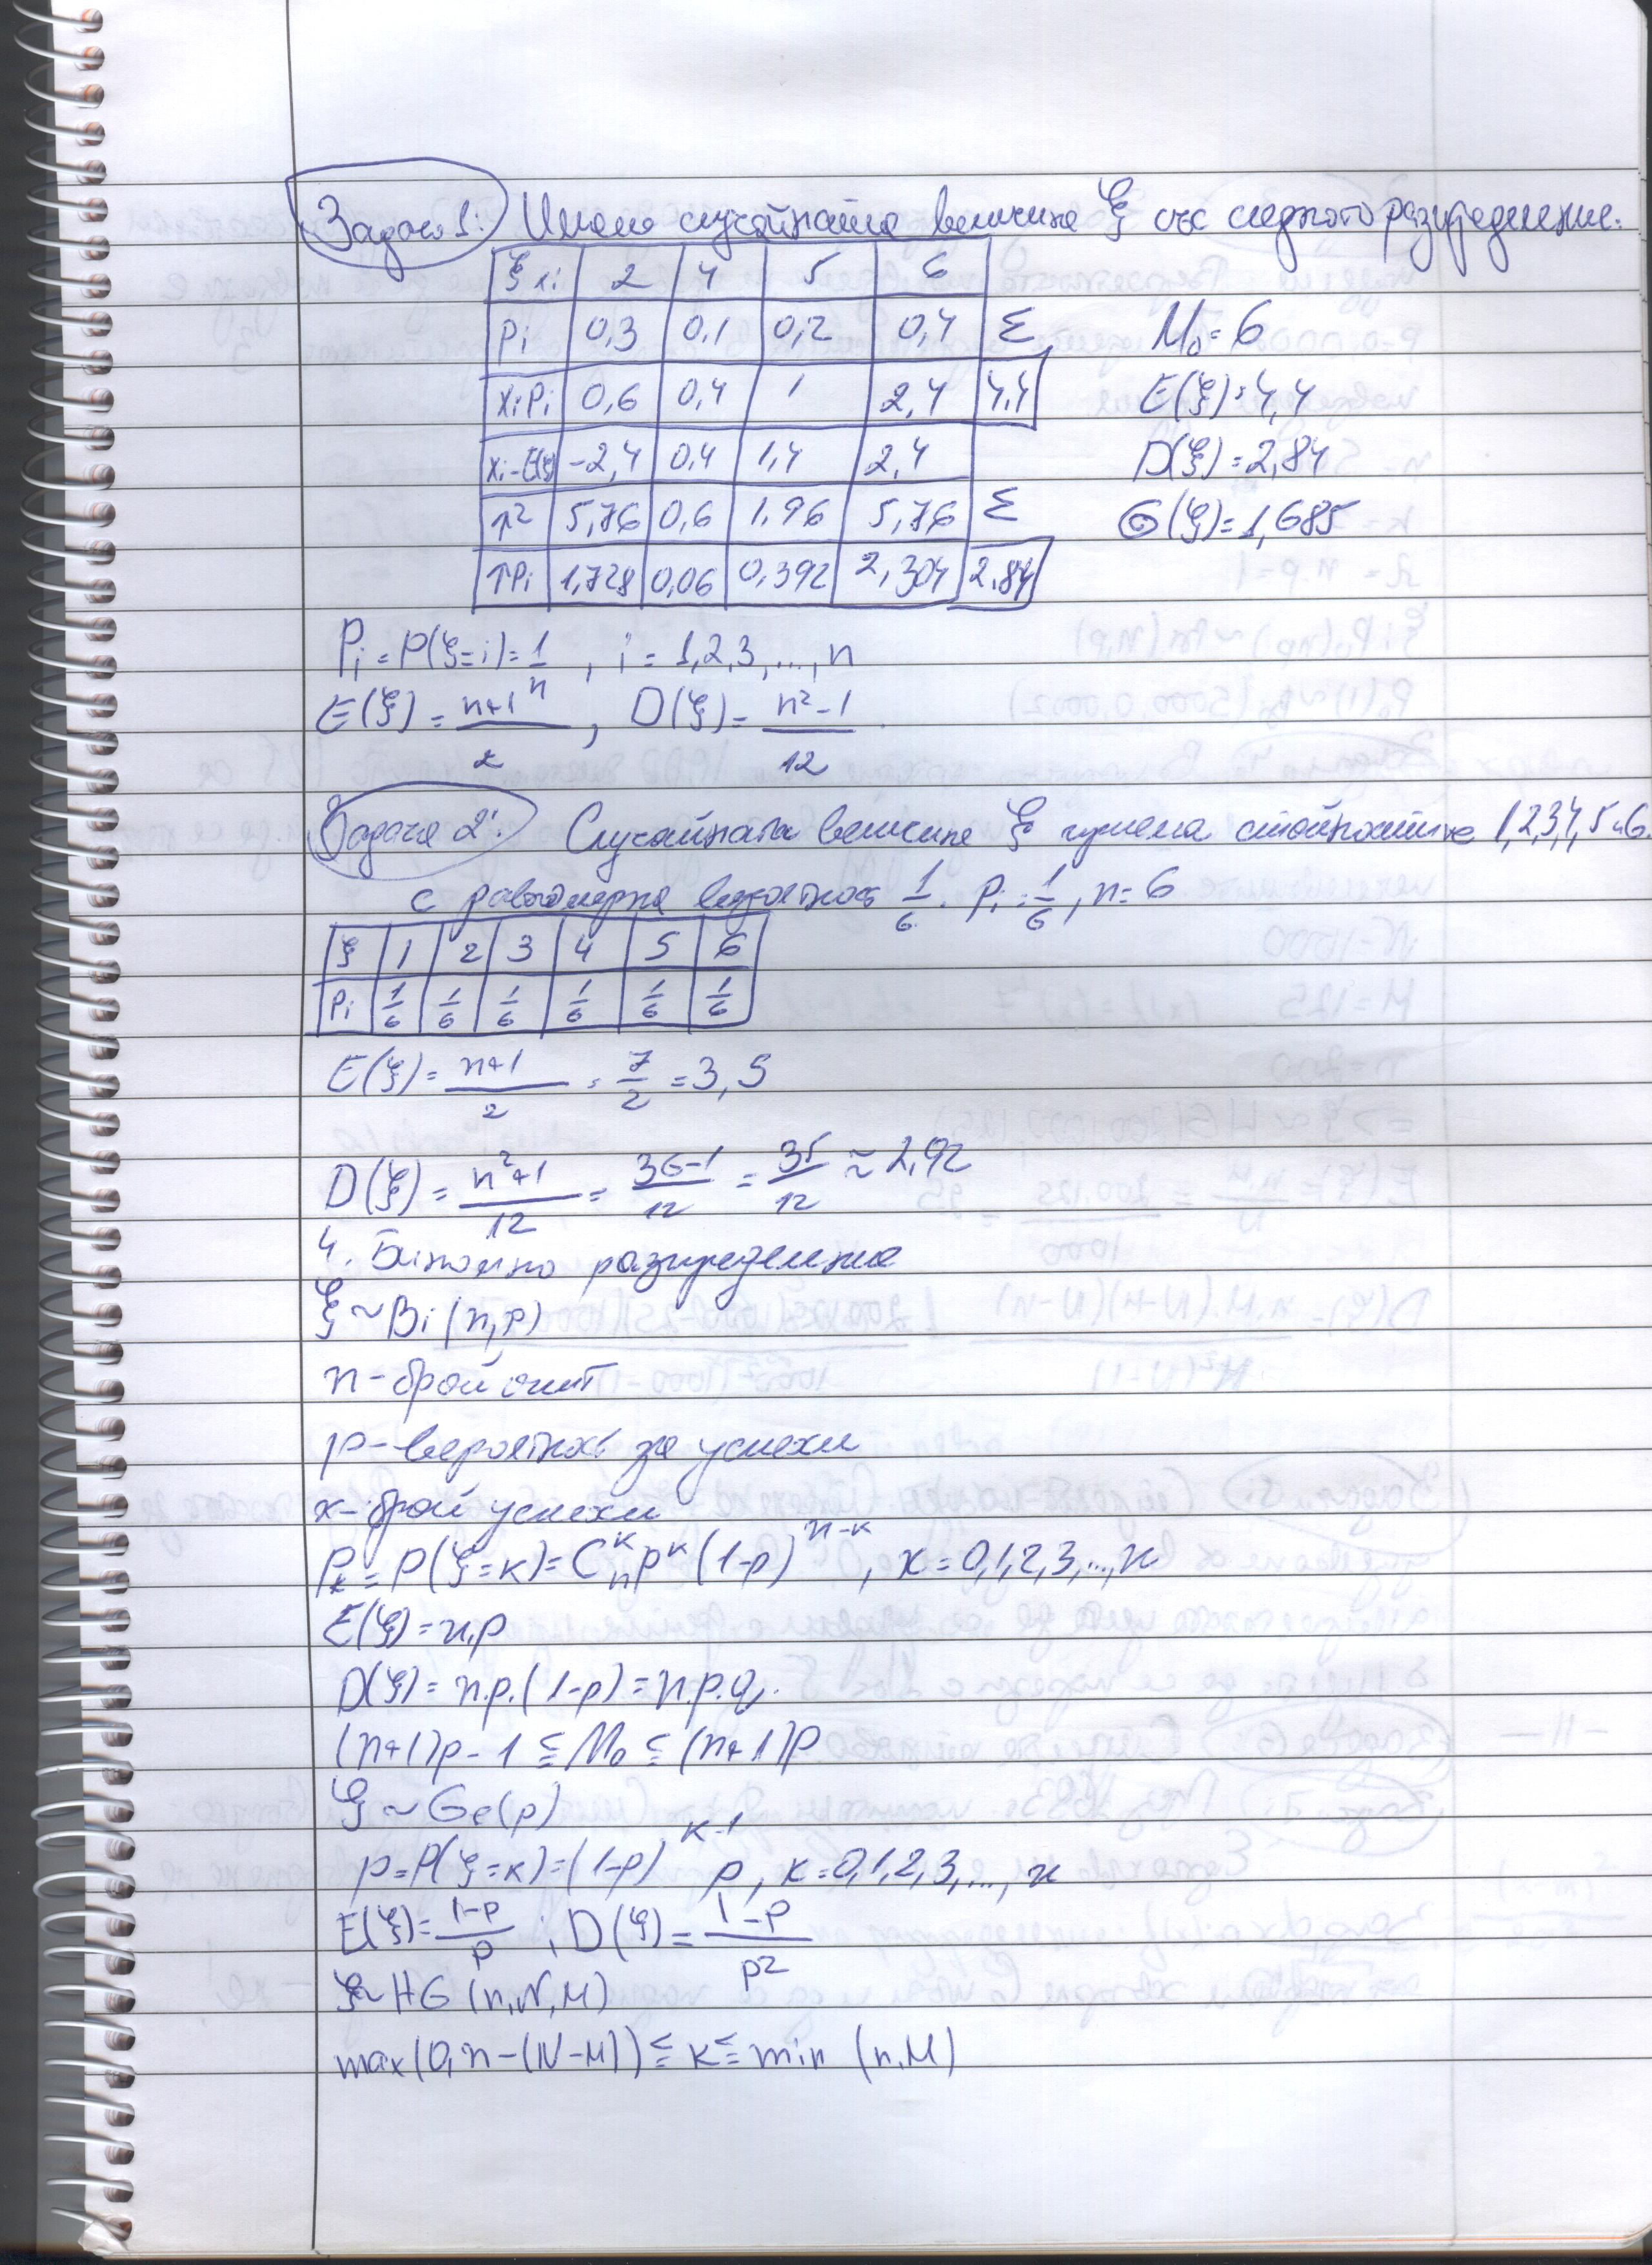 Задача 1: Имаме случайната величина ξ със следното разпределение:
ξ xi 2 4 5 6
Pi 0,3 0,1 0,2 0,4 Σ
xiPi 0,6 0,4 1 2,4 4,4
xi-E(ξ) -2,4 0,4 1,4 2,4
↑² 5,76 0,6 1,96 5,76 Σ
↑Pi 1,728 0,06 0,392 2,304 2,84
M₀=6
E(ξ)=4,4
D(ξ)=2,84
σ(ξ)=1,685
Pi=P(ξ=i)=1/n, i=1,2,3,...,n
E(ξ)=(n+1)/2, D(ξ)=(n²-1)/12.
Задача 2: Случайната величина ξ приема стойностите 1,2,3,4,5 и 6.
с равномерна вероятност 1/6. Pi=1/6, n=6
ξ 1 2 3 4 5 6
Pi 1/6 1/6 1/6 1/6 1/6 1/6
E(ξ)=(n+1)/2=7/2=3,5
D(ξ)=(n²+1)/12=(36-1)/12=35/12≈2,92
4. Биномно разпределение
ξ~Bi(n,p)
n-брой опит
p-вероятност за успехи
x-брой успехи
Pₖ=P(ξ=k)=Cₙᵏpᵏ(1-p)ⁿ⁻ᵏ, x=0,1,2,3,...,n
E(ξ)=n.p
D(ξ)=n.p.(1-p)=n.p.q.
(n+1)p-1≤M₀≤(n+1)p
ξ~Ge(p)
p=P(ξ=k)=(1-p)ᵏ⁻¹p, k=0,1,2,3,...,n
E(ξ)=(1-p)/p; D(ξ)=(1-p)/p²
ξ~HG(n,N,M)
max(0,n-(N-M))≤k≤min(n,M)